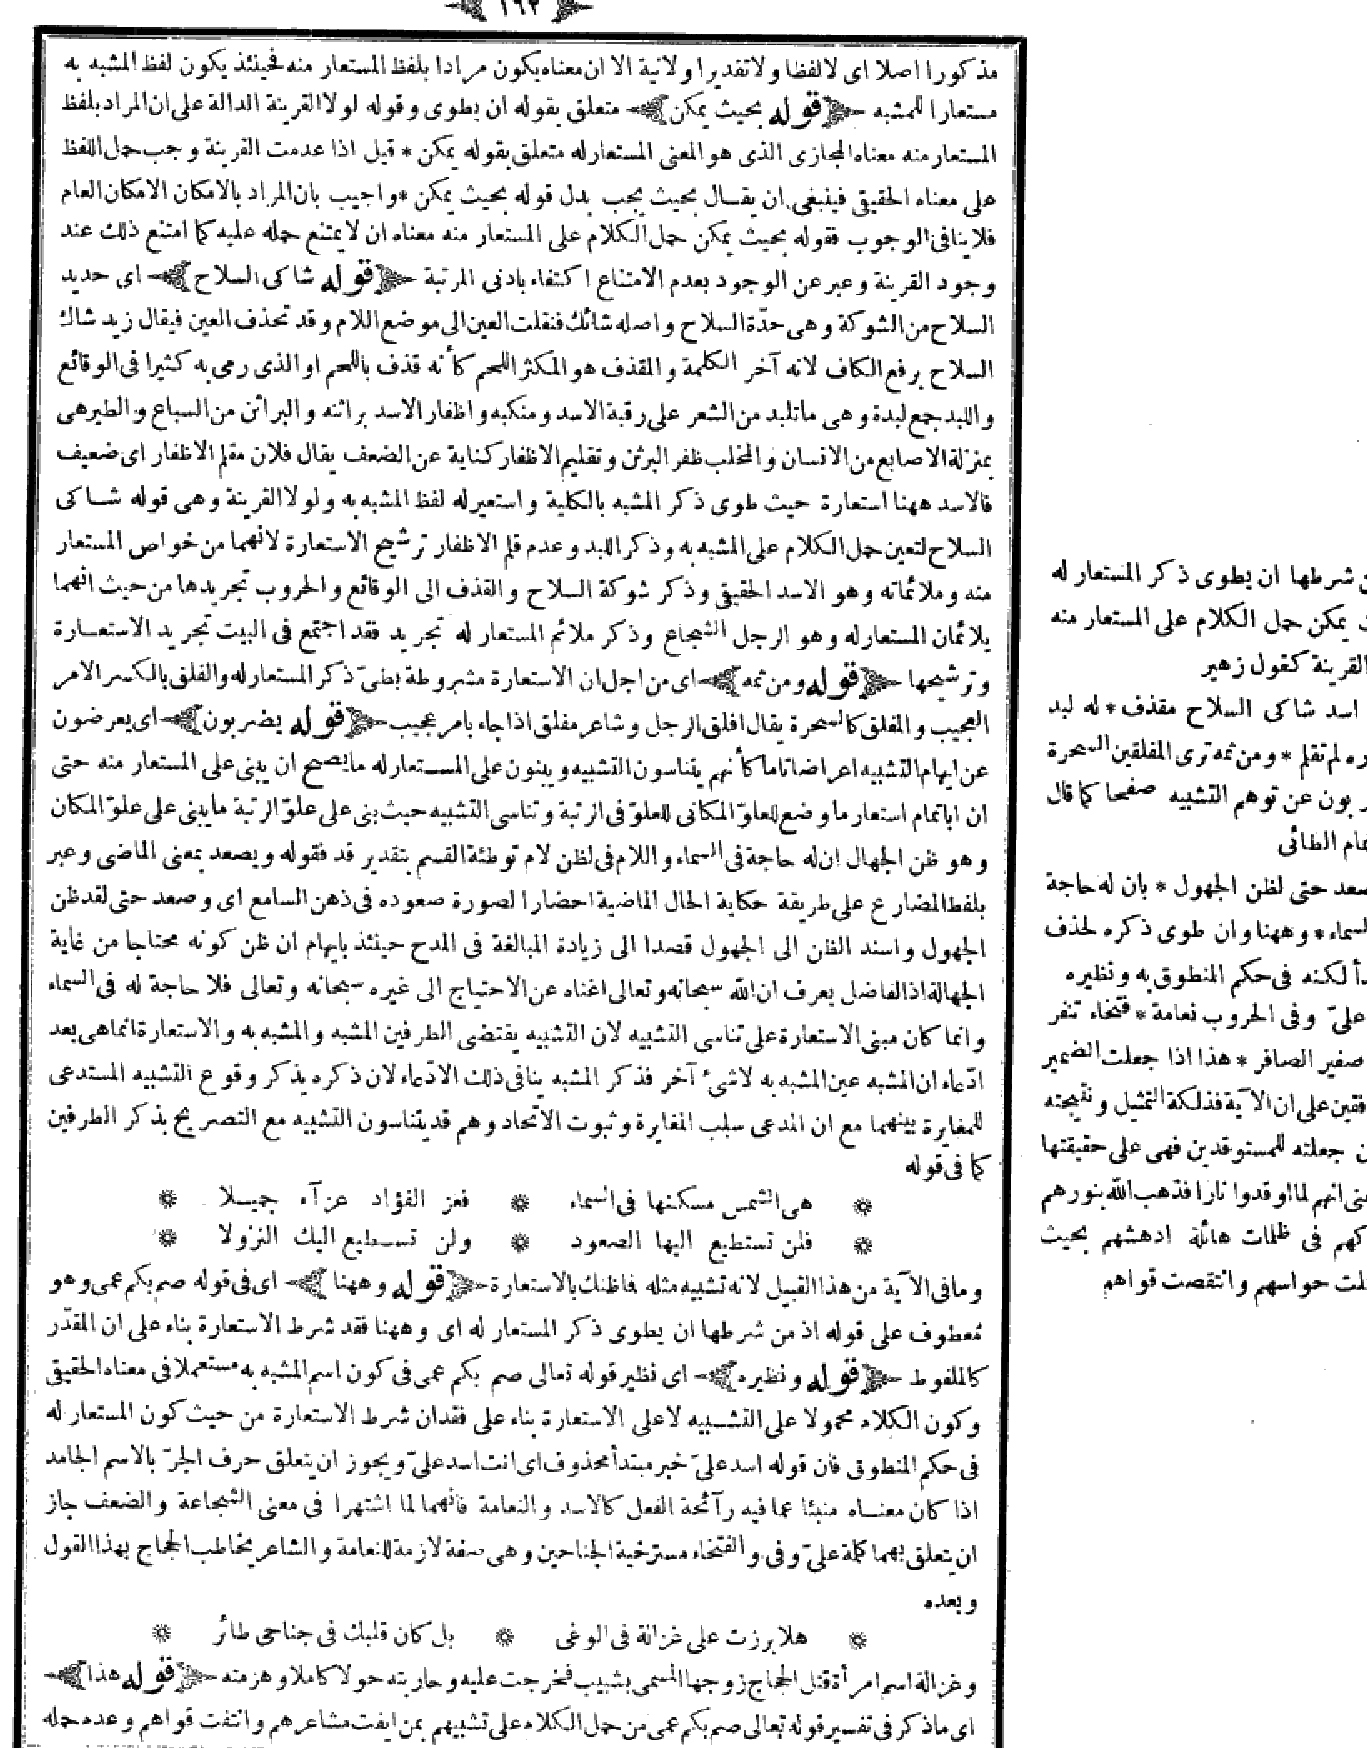 ١٦٢
مذكورا اصلا اى لالفظا ولاتقديرا ولانية الا ان معناه يكون مرادا بلفظ المستعار منه فحينئذ يكون لفظ المشبه به
مستعارا للمشبه ﴿قوله بحيث يمكن﴾ متعلق بقوله ان يطوى وقوله لولا القرينة الدالة على ان المراد بلفظ
المستعار منه معناه المجازى الذى هو المعنى المستعار له متعلق بقوله يمكن * قيل اذا عدمت القرينة وجب حمل اللفظ
على معناه الحقيقى فينبغى ان يقال بحيث يجب بدل قوله بحيث يمكن * واجيب بان المراد بالامكان الامكان العام
فلا ينافى الوجوب فقوله بحيث يمكن حمل الكلام على المستعار منه معناه ان لا يمتنع حمله عليه كما امتنع ذلك عند
وجود القرينة وعبر عن الوجود بعدم الامتناع اكتفاء بادنى المرتبة ﴿قوله شاكى السلاح﴾ اى حديد
السلاح من الشوكة وهى حدّة السلاح واصله شائك فنقلت العين الى موضع اللام وقد تحذف العين فيقال زيد شاك
السلاح برفع الكاف لانه آخر الكلمة والمقذف هو المكثر اللحم كأنه قذف باللحم او الذى رمى به كثيرا فى الوقائع
واللبد جمع لبدة وهى ماتلبد من الشعر على رقبة الاسد ومنكبه واظفار الاسد براثنه والبراثن من السباع والطير هى
بمنزلة الاصابع من الانسان والمخلب ظفر البرثن وتقليم الاظفار كناية عن الضعف يقال فلان مقلم الاظفار اى ضعيف
فالاسد ههنا استعارة حيث طوى ذكر المشبه بالكلية واستعير له لفظ المشبه به ولولا القرينة وهى قوله شاكى
السلاح لتعين حمل الكلام على المشبه به وذكر اللبد وعدم قلم الاظفار ترشيح الاستعارة لانهما من خواص المستعار
منه وملائماته وهو الاسد الحقيقى وذكر شوكة السلاح والقذف الى الوقائع والحروب تجريدها من حيث انهما
يلائمان المستعار له وهو الرجل الشجاع وذكر ملائم المستعار له تجريد فقد اجتمع فى البيت تجريد الاستعارة
وترشيحها ﴿قوله ومن ثمه﴾ اى من اجل ان الاستعارة مشروطة بطىّ ذكر المستعار له والفلق بالكسر الامر
العجيب والمفلق كالسحرة يقال افلق الرجل وشاعر مفلق اذا جاء بامر عجيب ﴿قوله يضربون﴾ اى يعرضون
عن ايهام التشبيه اعراضا تاما كأنهم يتناسون التشبيه ويبنون على المستعار له مايصح ان يبنى على المستعار منه حتى
ان اباتمام استعار ماوضع للعلوّ المكانى للعلوّ فى الرتبة وتناسى التشبيه حيث بنى على علوّ الرتبة مايبنى على علوّ المكان
وهو ظن الجهال ان له حاجة فى السماء واللام فى لظن لام توطئة القسم بتقدير قد فقوله ويصعد بمعنى الماضى وعبر
بلفظ المضارع على طريقة حكاية الحال الماضية احضارا لصورة صعوده فى ذهن السامع اى وصعد حتى لقد ظن
الجهول واسند الظن الى الجهول قصدا الى زيادة المبالغة فى المدح حينئذ بايهام ان ظن كونه محتاجا من غاية
الجهالة اذ الفاضل يعرف ان الله سبحانه وتعالى اغناه عن الاحتياج الى غيره سبحانه وتعالى فلا حاجة له فى السماء
وانما كان مبنى الاستعارة على تناسى التشبيه لان التشبيه يقتضى الطرفين المشبه والمشبه به والاستعارة انماهى بعد
ادّعاء ان المشبه عين المشبه به لاشئ آخر فذكر المشبه ينافى ذلك الادّعاء لان ذكره يذكر وقوع التشبيه المستدعى
للمغايرة بينهما مع ان المدعى سلب المغايرة وثبوت الاتحاد وهم قد يتناسون التشبيه مع التصريح بذكر الطرفين
كما فى قوله
هى الشمس مسكنها فى السماء * فعز الفؤاد عزآء جميلا
فلن تستطيع اليها الصعود * ولن تستطيع اليك النزولا
ومافى الآية من هذا القبيل لانه تشبيه مثله فاظنك بالاستعارة ﴿قوله وههنا﴾ اى فى قوله صم بكم عمى وهو
معطوف على قوله اذ من شرطها ان يطوى ذكر المستعار له اى وههنا فقد شرط الاستعارة بناء على ان المقدّر
كالملفوظ ﴿قوله ونظيره﴾ اى نظير قوله تعالى صم بكم عمى فى كون اسم المشبه به مستعملا فى معناه الحقيقى
وكون الكلام محمولا على التشبيه لاعلى الاستعارة بناء على فقدان شرط الاستعارة من حيث كون المستعار له
فى حكم المنطوق فان قوله اسد علىّ خبر مبتدأ محذوف اى انت اسد علىّ ويجوز ان يتعلق حرف الجرّ بالاسم الجامد
اذا كان معناه منبئا عما فيه رآئحة الفعل كالاسد والنعامة فانهما لما اشتهرا فى معنى الشجاعة والضعف جاز
ان يتعلق بهما كلمة علىّ وفى والفتخاء مسترخية الجناحين وهى صفة لازمة للنعامة والشاعر يخاطب الحجاج بهذا القول
وبعده
هلا برزت على غزالة فى الوغى * بل كان قلبك فى جناحى طائر
وغزالة اسم امرأة قتل الحجاج زوجها المسمى بشبيب فخرجت عليه وحاربته حولا كاملا وهزمته ﴿قوله هذا﴾
اى ماذكر فى تفسير قوله تعالى صم بكم عمى من حمل الكلام على تشبيههم بمن ايفت مشاعرهم وانتفت قواهم وعدم حمله
ن شرطها ان يطوى ذكر المستعار له
يمكن حمل الكلام على المستعار منه
القرينة كقول زهير
اسد شاكى السلاح مقذف * له لبد
ره لم تقلم * ومن ثمه ترى المفلقين السحرة
ربون عن توهم التشبيه صفحا كما قال
مام الطائى
صعد حتى لظن الجهول * بان له حاجة
السماء * وههنا وان طوى ذكره لحذف
دأ لكنه فى حكم المنطوق به ونظيره
علىّ وفى الحروب نعامة * فتخاء تنفر
صفير الصافر * هذا اذا جعلت الضمير
فقين على ان الآية فذلكة التمثيل ونتيجته
ن جعلته للمستوقدين فهى على حقيقتها
نى انهم لما اوقدوا نارا فذهب الله بنورهم
كهم فى ظلمات هائلة ادهشهم بحيث
لت حواسهم وانتقصت قواهم